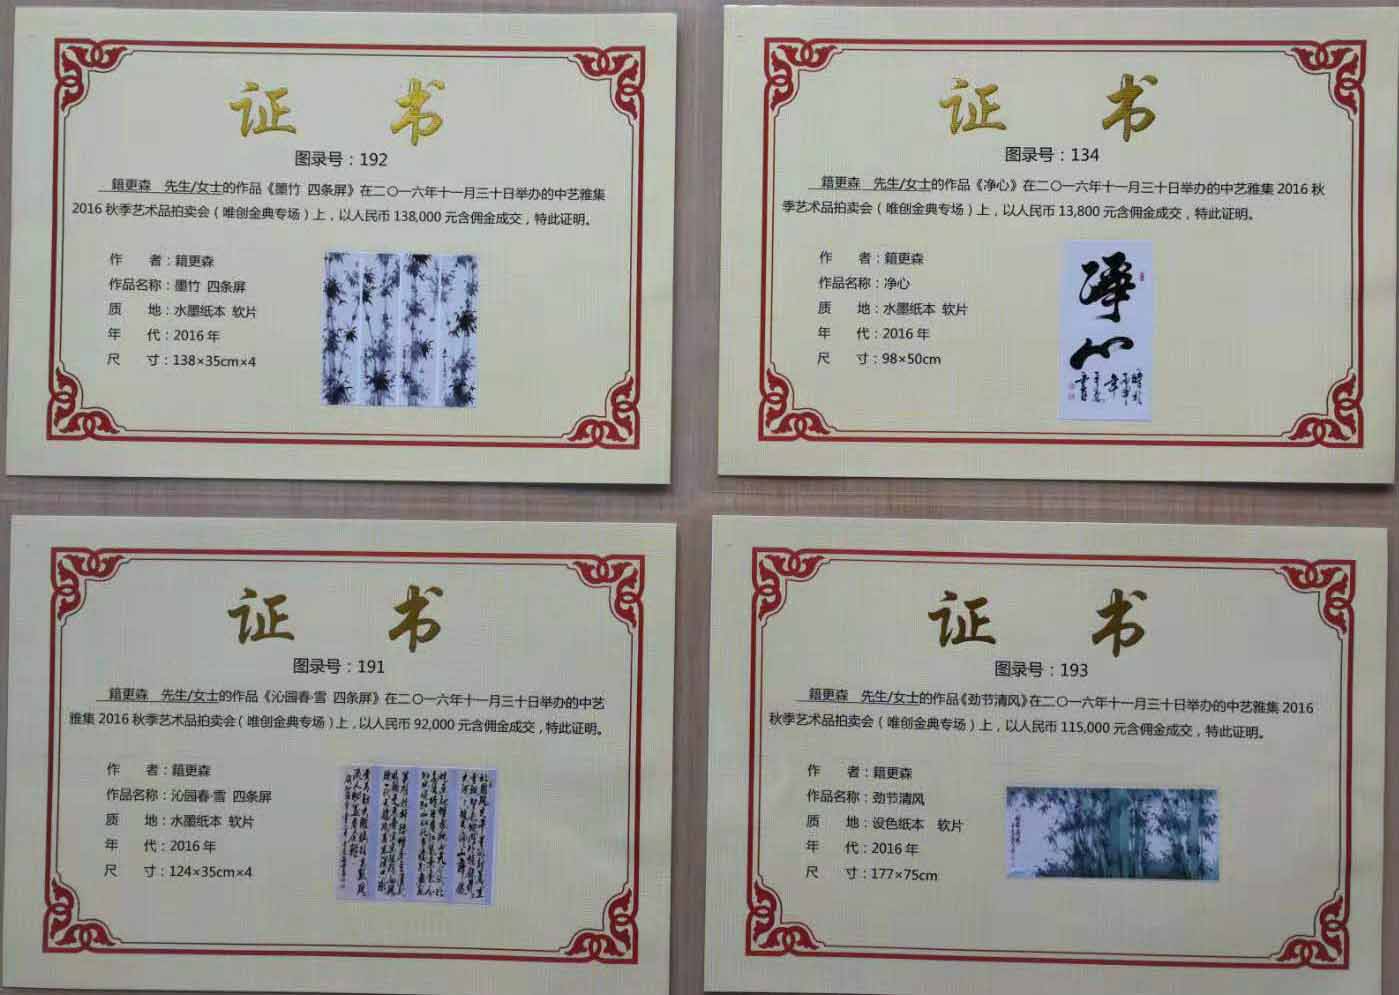 证 书
图录号：192
籍更森 先生/女士的作品《墨竹 四条屏》在二〇一六年十一月三十日举办的中艺雅集
2016 秋季艺术品拍卖会（唯创金典专场）上，以人民币 138,000 元含佣金成交，特此证明。
作 者：籍更森
作品名称：墨竹 四条屏
质 地：水墨纸本 软片
年 代：2016 年
尺 寸：138×35cm×4
证 书
图录号：134
籍更森 先生/女士的作品《净心》在二〇一六年十一月三十日举办的中艺雅集 2016 秋
季艺术品拍卖会（唯创金典专场）上，以人民币 13,800 元含佣金成交，特此证明。
作 者：籍更森
作品名称：净心
质 地：水墨纸本 软片
年 代：2016 年
尺 寸：98×50cm
证 书
图录号：191
籍更森 先生/女士的作品《沁园春·雪 四条屏》在二〇一六年十一月三十日举办的中艺
雅集 2016 秋季艺术品拍卖会（唯创金典专场）上，以人民币 92,000 元含佣金成交，特此证明。
作 者：籍更森
作品名称：沁园春·雪 四条屏
质 地：水墨纸本 软片
年 代：2016 年
尺 寸：124×35cm×4
证 书
图录号：193
籍更森 先生/女士的作品《劲节清风》在二〇一六年十一月三十日举办的中艺雅集 2016
秋季艺术品拍卖会（唯创金典专场）上，以人民币 115,000 元含佣金成交，特此证明。
作 者：籍更森
作品名称：劲节清风
质 地：设色纸本 软片
年 代：2016 年
尺 寸：177×75cm